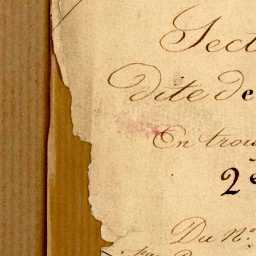 Sect
dite de
En trou
2e
Du N°